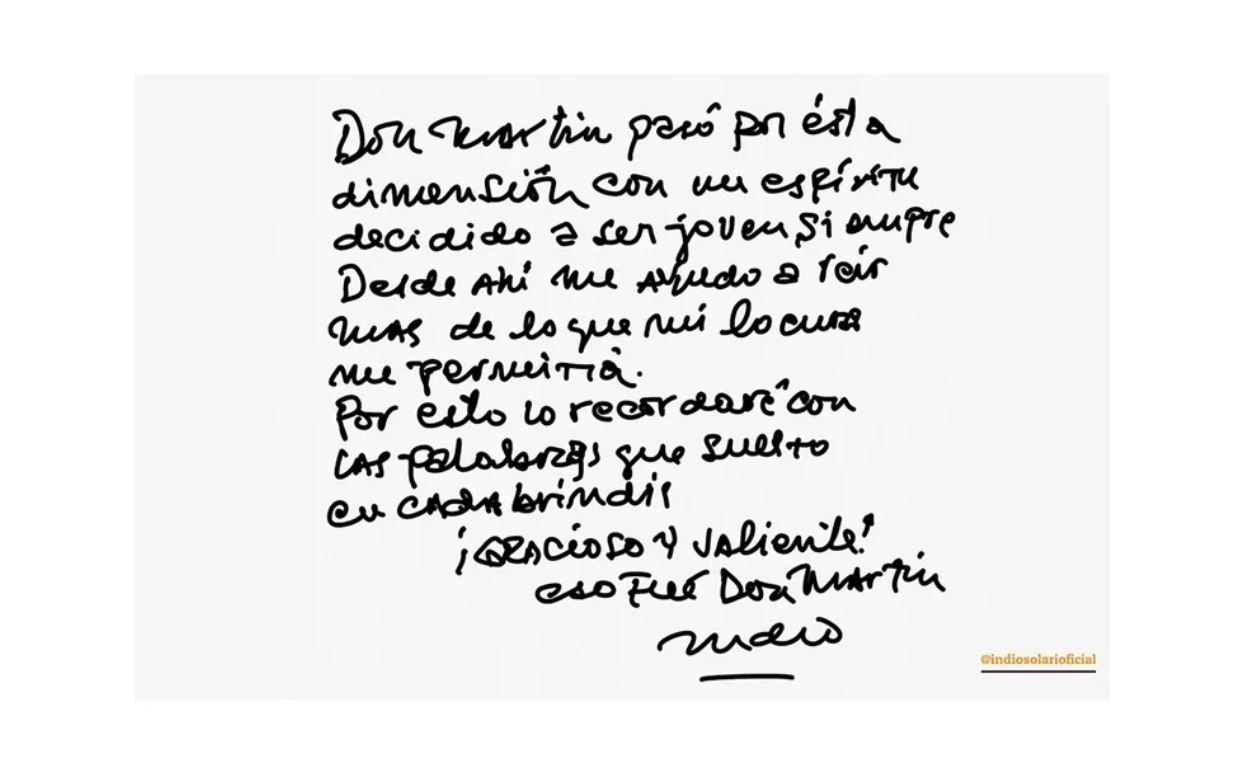 Don Martin pasó por ésta
dimensión con un espíritu
decidido a ser joven siempre
Desde Ahí me ayudo a reir
mas de lo que mi locura
me permitía.
Por esto lo recordaré con
las palabras que suelto
en cada brindis
¡Gracioso y valiente!
eso Fué Don Martin
Indio
@indiosolarioficial